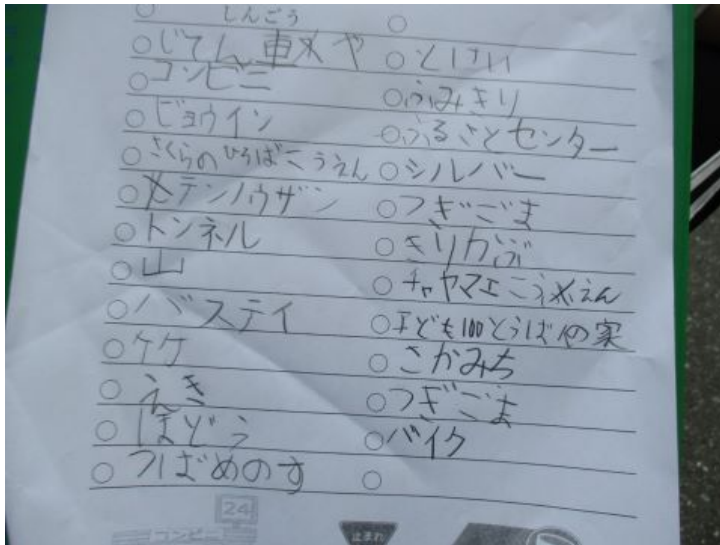 しんごう
○じてん車や
○コンビニ
○ビョウイン
○さくらのひろばこうえん
○テンノウザン
○トンネル
○山
○バステイ
○ケケ
○えき
○ほどう
○つばめのす
○
○とけい
○ふみきり
○ふるさとセンター
○シルバー
○つぎごま
○きりかぶ
○チャヤマエこうえん
○子ども100とうばんの家
○さかみち
○つぎごま
○バイク
○
24
コンビニ
止まれ